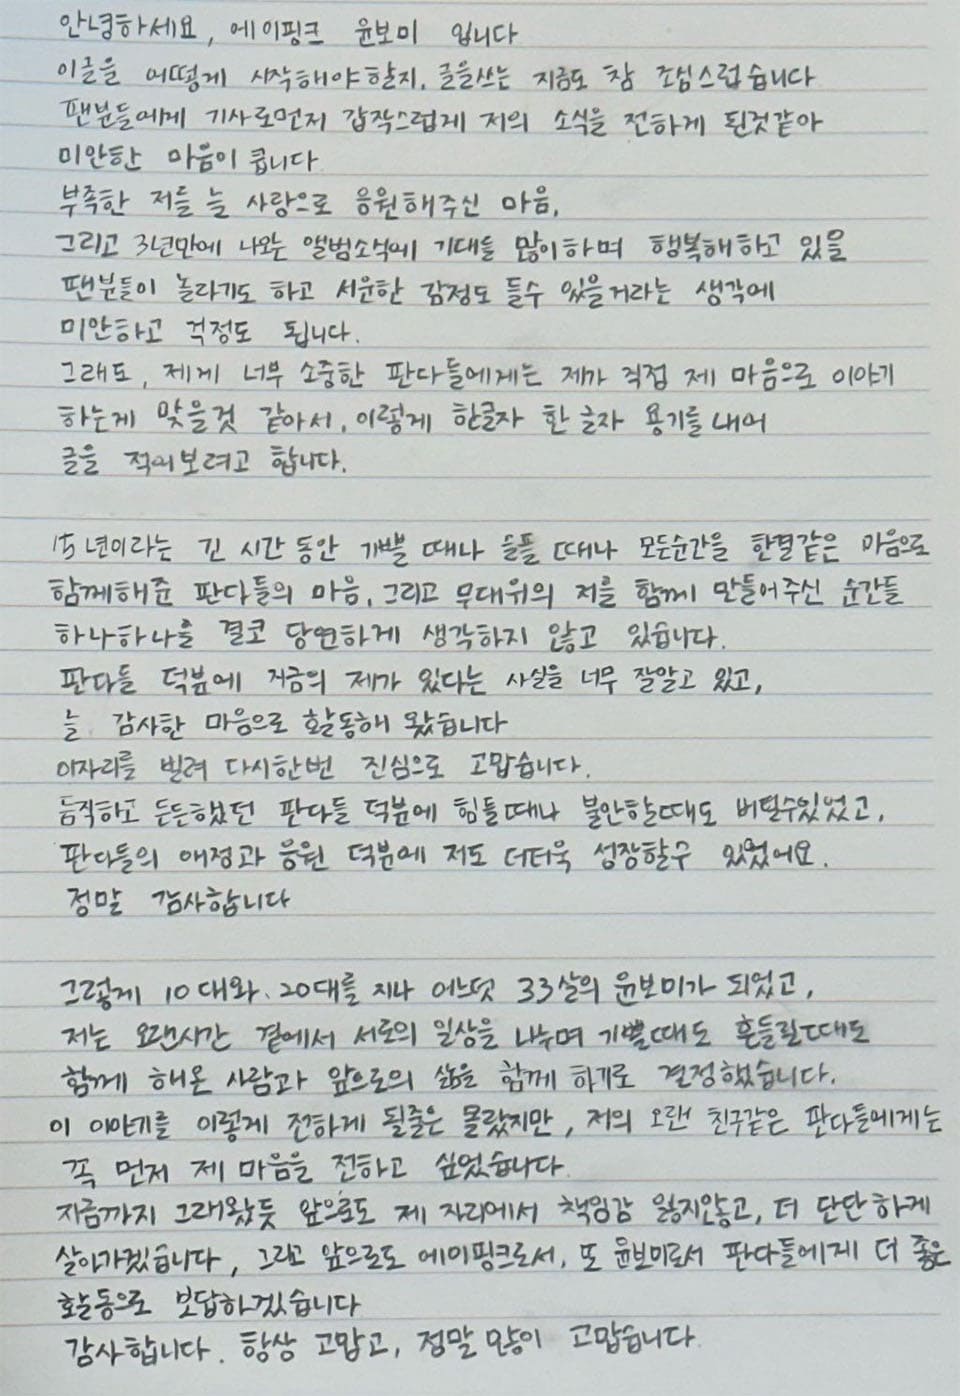 안녕하세요, 에이핑크 윤보미 입니다
이글을 어떻게 시작해야할지, 글을쓰는 지금도 참 조심스럽습니다
팬분들에게 기사로먼저 갑작스럽게 저의 소식을 전하게 된것같아
미안한 마음이 큽니다
부족한 저를 늘 사랑으로 응원해주신 마음,
그리고 3년만에 나오는 앨범소식에 기대를 많이하며 행복해하고 있을
팬분들이 놀라기도 하고 서운한 감정도 들수 있을거라는 생각에
미안하고 걱정도 됩니다.
그래도, 제게 너무 소중한 판다들에게는 제가 직접 제 마음으로 이야기
하는게 맞을것 같아서, 이렇게 한글자 한 글자 용기를 내어
글을 적어보려고 합니다.
15년이라는 긴 시간동안 기쁠 때나 슬플 때나 모든순간을 한결같은 마음으로
함께해준 판다들의 마음, 그리고 무대위의 저를 함께 만들어주신 순간들
하나하나를 결코 당연하게 생각하지 않고 있습니다.
판다들 덕분에 지금의 제가 있다는 사실을 너무 잘알고 있고,
늘 감사한 마음으로 활동해 왔습니다
이자리를 빌려 다시한번 진심으로 고맙습니다.
듬직하고 든든했던 판다들 덕분에 힘들때나 불안할때도 버틸수있었고,
판다들의 애정과 응원 덕분에 저도 더더욱 성장할수 있었어요.
정말 감사합니다
그렇게 10대와, 20대를 지나 어느덧 33살의 윤보미가 되었고,
저는 오랜시간 곁에서 서로의 일상을 나누며 기쁠때도 흔들릴때도
함께 해온 사람과 앞으로의 삶을 함께 하기로 결정했습니다.
이 이야기를 이렇게 전하게 될줄은 몰랐지만, 저의 오랜 친구같은 판다들에게는
꼭 먼저 제 마음을 전하고 싶었습니다.
지금까지 그래왔듯 앞으로도 제 자리에서 책임감 잃지않고, 더 단단하게
살아가겠습니다, 그리고 앞으로도 에이핑크로서, 또 윤보미로서 판다들에게 더 좋은
활동으로 보답하겠습니다
감사합니다. 항상 고맙고, 정말 많이 고맙습니다.